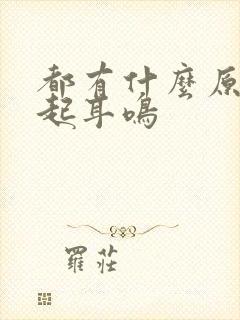 都有什麼原
起耳鳴
羅莊